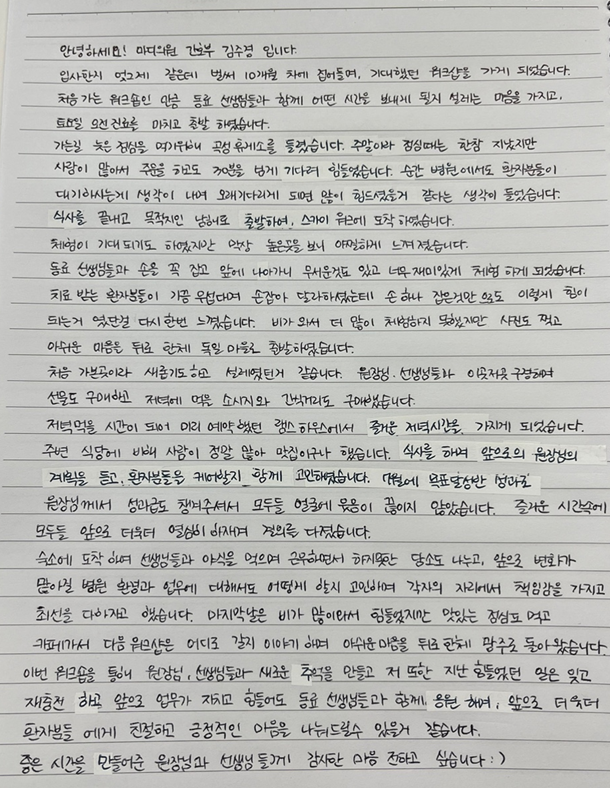 안녕하세요! 마디의원 간호부 김수경 입니다.
입사한지 엊그제 같은데 벌써 10개월 차에 접어들며, 기대했던 워크샵을 가게 되었습니다.
처음 가는 워크숍인 만큼 동료 선생님들과 함께 어떤 시간을 보내게 될지 설레는 마음을 가지고,
토요일 오전 진료를 마치고 출발 하였습니다.
가는길 늦은 점심을 먹기위해 곡성 휴게소를 들렸습니다. 주말이라 점심때는 한참 지났지만
사람이 많아서 주문을 하고도 30분을 넘게 기다려 힘들었습니다. 순간 병원에서도 환자분들이
대기하시는게 생각이 나며 오래기다리게 되면 많이 힘드셨을거 같다는 생각이 들었습니다.
식사를 끝내고 목적지인 남해로 출발하여, 스카이 워크에 도착 하였습니다.
체험이 기대 되기도 하였지만 막상 높은곳을 보니 아찔하게 느껴 졌습니다.
동료 선생님들과 손을 꼭 잡고 앞에 나아가니 무서운것도 잊고 너무 재미있게 체험 하게 되었습니다.
치료 받는 환자분들이 가끔 무섭다며 손잡아 달라하셨는데 손 하나 잡은것만으로도 이렇게 힘이
되는거 였단걸 다시 한번 느꼈습니다. 비가 와서 더 많이 체험하지 못했지만 사진도 찍고
아쉬운 마음을 뒤로 한체 독일 마을로 출발하였습니다.
처음 가본곳이라 새롭기도 하고 설레였던거 같습니다. 원장님. 선생님들과 이곳저곳 구경하며
선물도 구매하고 저녁에 먹을 소시지와 간식거리도 구매했습니다.
저녁먹을 시간이 되어 미리 예약했던 램스 하우스에서 즐거운 저녁시간을 가지게 되었습니다.
주변 식당에 비해 사람이 정말 많아 맛집이구나 했습니다. 식사를 하며 앞으로의 원장님의
계획을 듣고, 환자분들을 케어할지 함께 고민하였습니다. 7월에 목표달성한 성과로
원장님께서 성과금도 챙겨주셔서 모두들 얼굴에 웃음이 끊이지 않았습니다. 즐거운 시간속에
모두들 앞으로 더욱더 열심히 하자며 결의를 다졌습니다.
숙소에 도착 하여 선생님들과 야식을 먹으며 근무하면서 하지못한 담소도 나누고, 앞으로 변화가
많아질 병원 환경과 업무에 대해서도 어떻게 할지 고민하며 각자의 자리에서 책임감을 가지고
최선을 다하자고 했습니다. 마지막날은 비가 많이와서 힘들었지만 맛있는 점심도 먹고
카페가서 다음 워크샵은 어디로 갈지 이야기 하며 아쉬운 마음을 뒤로 한체 광주로 돌아 왔습니다.
이번 워크숍을 통해 원장님, 선생님들과 새로운 추억을 만들고 저 또한 지난 힘들었던 일은 잊고
재충전 하고 앞으로 업무가 지치고 힘들어도 동료 선생님들과 함께, 응원 해며, 앞으로 더욱더
환자분들 에게 친절하고 긍정적인 마음을 나눠드릴수 있을거 같습니다.
좋은 시간을 만들어준 원장님과 선생님 들께 감사한 마음 전하고 싶습니다 : )